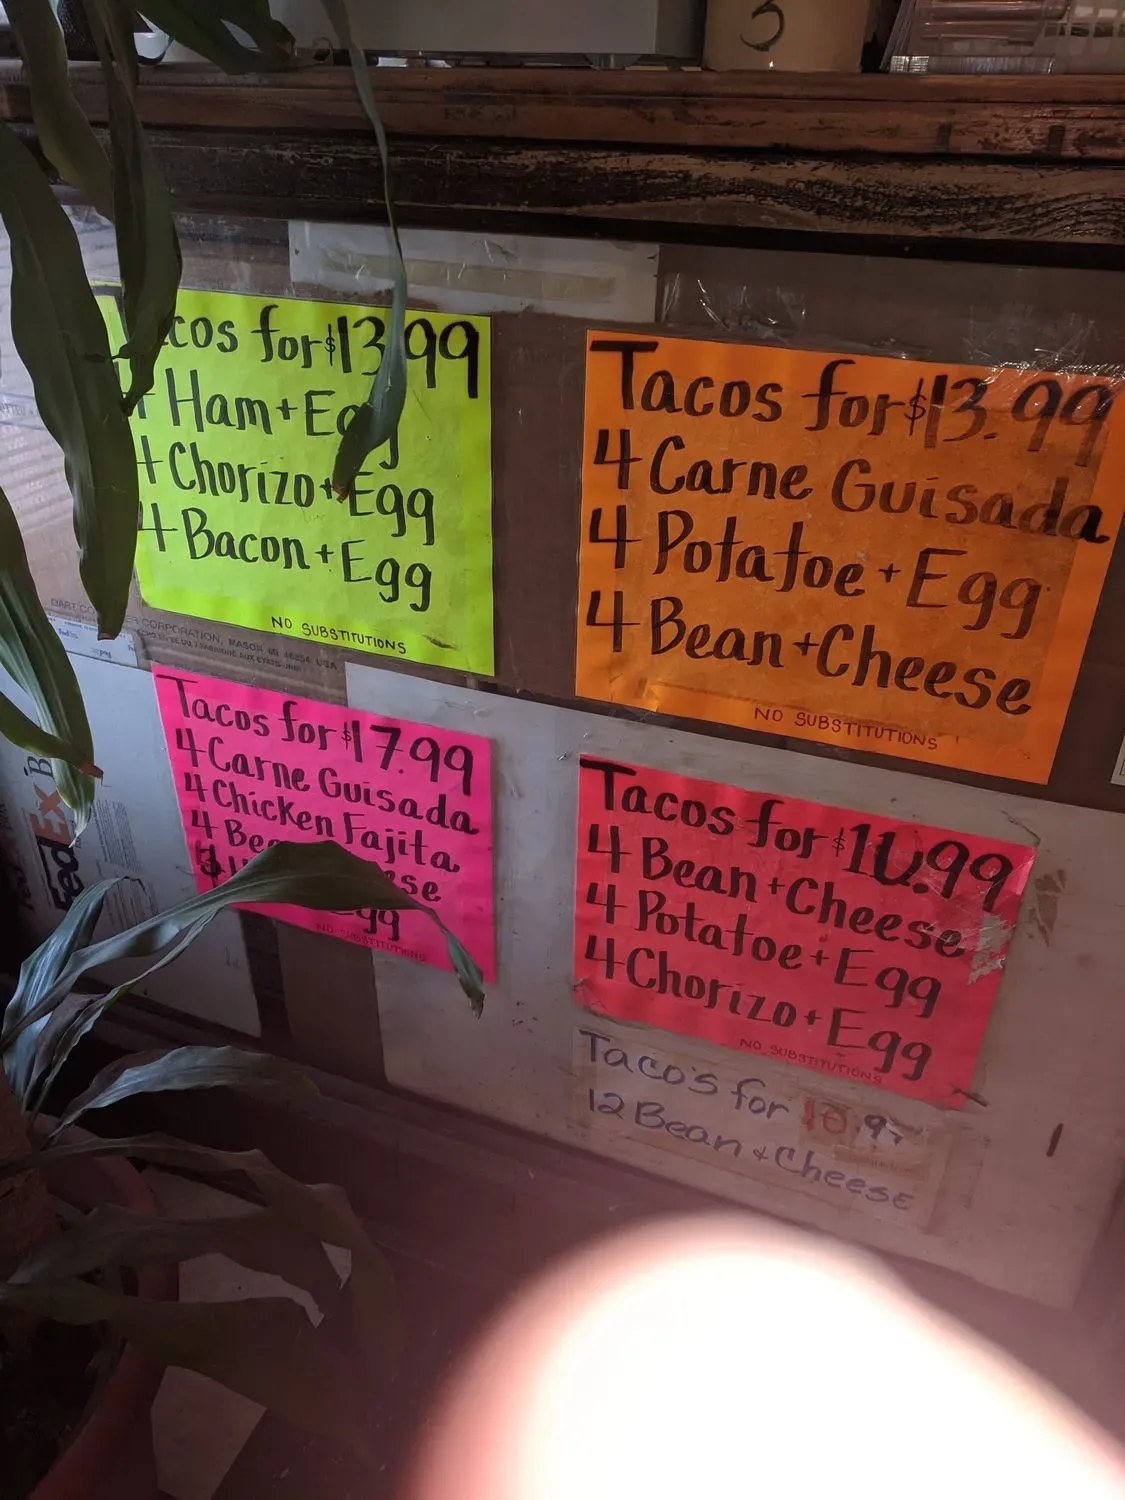 3
Tacos for $13.99
4 Ham + Egg
4 Chorizo + Egg
4 Bacon + Egg
NO SUBSTITUTIONS
Tacos for $13.99
4 Carne Guisada
4 Potatoe + Egg
4 Bean + Cheese
NO SUBSTITUTIONS
CORPORATION, MASON MI 48854 USA
Tacos for $17.99
4 Carne Guisada
4 Chicken Fajita
4
Egg
NO SUBSTITUTIONS
FedEx
Tacos for $11.99
4 Bean + Cheese
4 Potatoe + Egg
4 Chorizo + Egg
NO SUBSTITUTIONS
Taco's for 10.9
12 Bean & Cheese